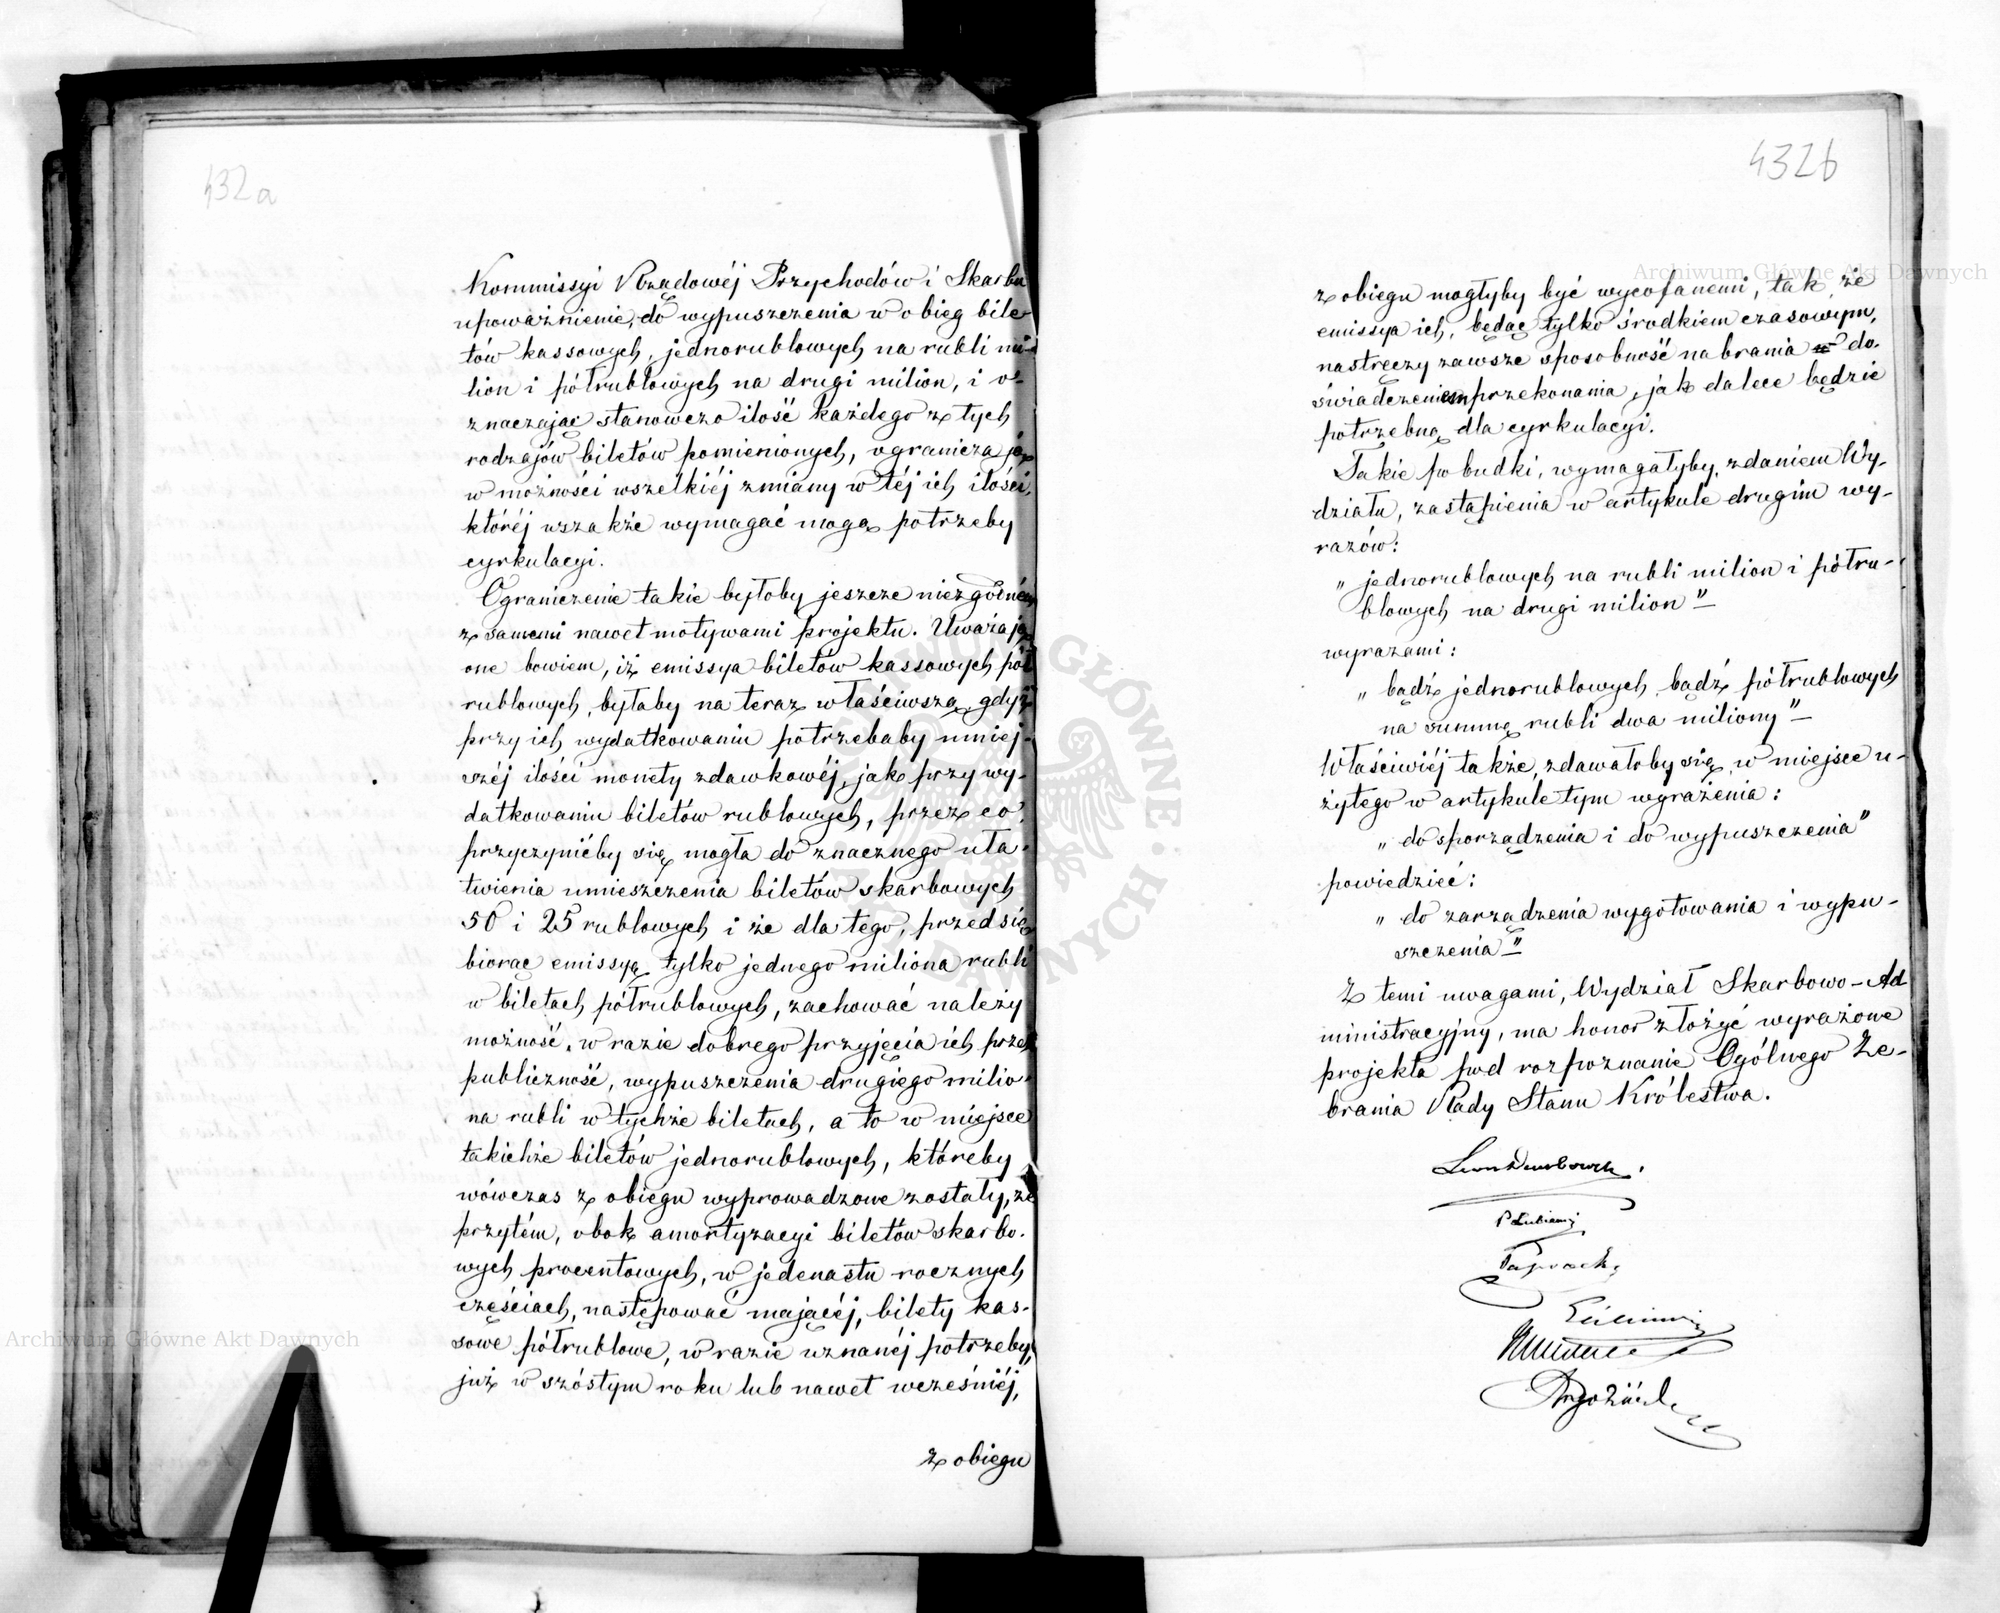 432a
Kommissyi Rządowéj Przychodów i Skarbu
upoważnienie, do wypuszczenia w obieg bile
tów kassowych, jednorublowych na rubli mi-
lion i półrublowych na drugi milion, i o-
znaczając stanowczo ilość każdego z tych
rodzajów biletów pomienionych, ogranicza ją
w możności wszelkiéj zmiany w téj ich ilości,
któréj wszakże wymagać mogą potrzeby
cyrkulacyi.
Ograniczenie takie byłoby jeszcze niezgodném
z samemi nawet motywami projektu. Uważają
one bowiem, iż emissya biletów kassowych pół
rublowych, byłaby na teraz właściwszą, gdyż
przy ich wydatkowaniu potrzebaby mniej-
széj ilości monety zdawkowéj, jak przy wy-
datkowaniu biletów rublowych, przez co,
przyczynićby się mogła do znacznego uła-
twienia umieszczenia biletów skarbowych
50 i 25 rublowych i że dla tego, przedsię
biorąc emissyą tylko jednego miliona rubli
w biletach półrublowych, zachować należy
możność, w razie dobrego przyjęcia ich przez
publiczność, wypuszczenia drugiego milio-
na rubli w tychże biletach, a to w miejsce
takichże biletów jednorublowych, któreby
wówczas z obiegu wyprowadzone zostały, że
przytém, obok amortyzacyi biletów skarbo-
wych procentowych, w jedenastu rocznych
częściach, następować mającéj, bilety kas-
sowe półrublowe, w razie uznanéj potrzeby,
już w szóstym roku lub nawet wcześniéj,
z obiegu
432b
z obiegu mogłyby być wycofanemi, tak, że
emissya ich, będąc tylko środkiem czasowym,
nastręczy zawsze sposobność nabrania do-
świadczeniem przekonania, jak dalece będzie
potrzebną dla cyrkulacyi.
Takie pobudki, wymagałyby, zdaniem Wy-
działu, zastąpienia w artykule drugim wy-
razów:
„ jednorublowych na rubli milion i półru-
blowych na drugi milion"—
wyrazami:
„ bądź jednorublowych, bądź półrublowych
na summę rubli dwa miliony"—
Właściwiéj także, zdawałoby się, w miejsce u-
żytego w artykule tym wyrażenia:
„ do sporządzenia i do wypuszczenia"
powiedzieć:
„ do zarządzenia wygotowania i wypu-
szczenia"—
Z temi uwagami, Wydział Skarbowo-Ad
ministracyjny, ma honor złożyć wyrażone
projekta pod rozpoznanie Ogólnego Ze-
brania Rady Stanu Królestwa.
Leon Dembowski.
P Łubieński
Archiwum Główne Akt Dawnych
Archiwum Główne Akt Dawnych